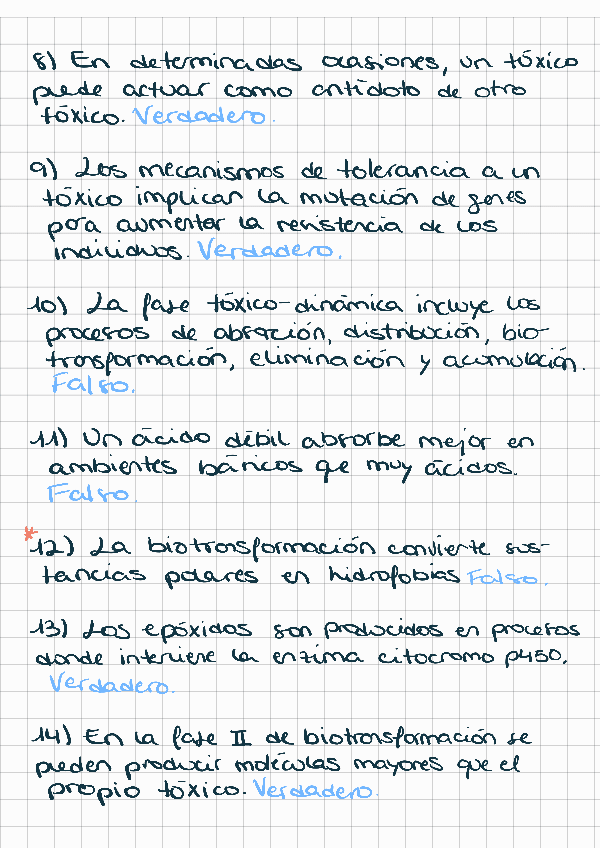 8) En determinadas ocasiones, un tóxico
puede actuar como antídoto de otro
tóxico. Verdadero.
9) Los mecanismos de tolerancia a un
tóxico implican la mutación de genes
para aumentar la resistencia de los
individuos. Verdadero.
10) La fase tóxico-dinámica incluye los
procesos de absorción, distribución, bio-
transformación, eliminación y acumulación.
Falso.
11) Un ácido débil absorbe mejor en
ambientes básicos que muy ácidos.
Falso.
*12) La biotransformación convierte sus-
tancias polares en hidrofobias Falso.
13) Los epóxidos son producidos en procesos
donde interviene la enzima citocromo p450.
Verdadero.
14) En la fase II de biotransformación se
pueden producir moléculas mayores que el
propio tóxico. Verdadero.